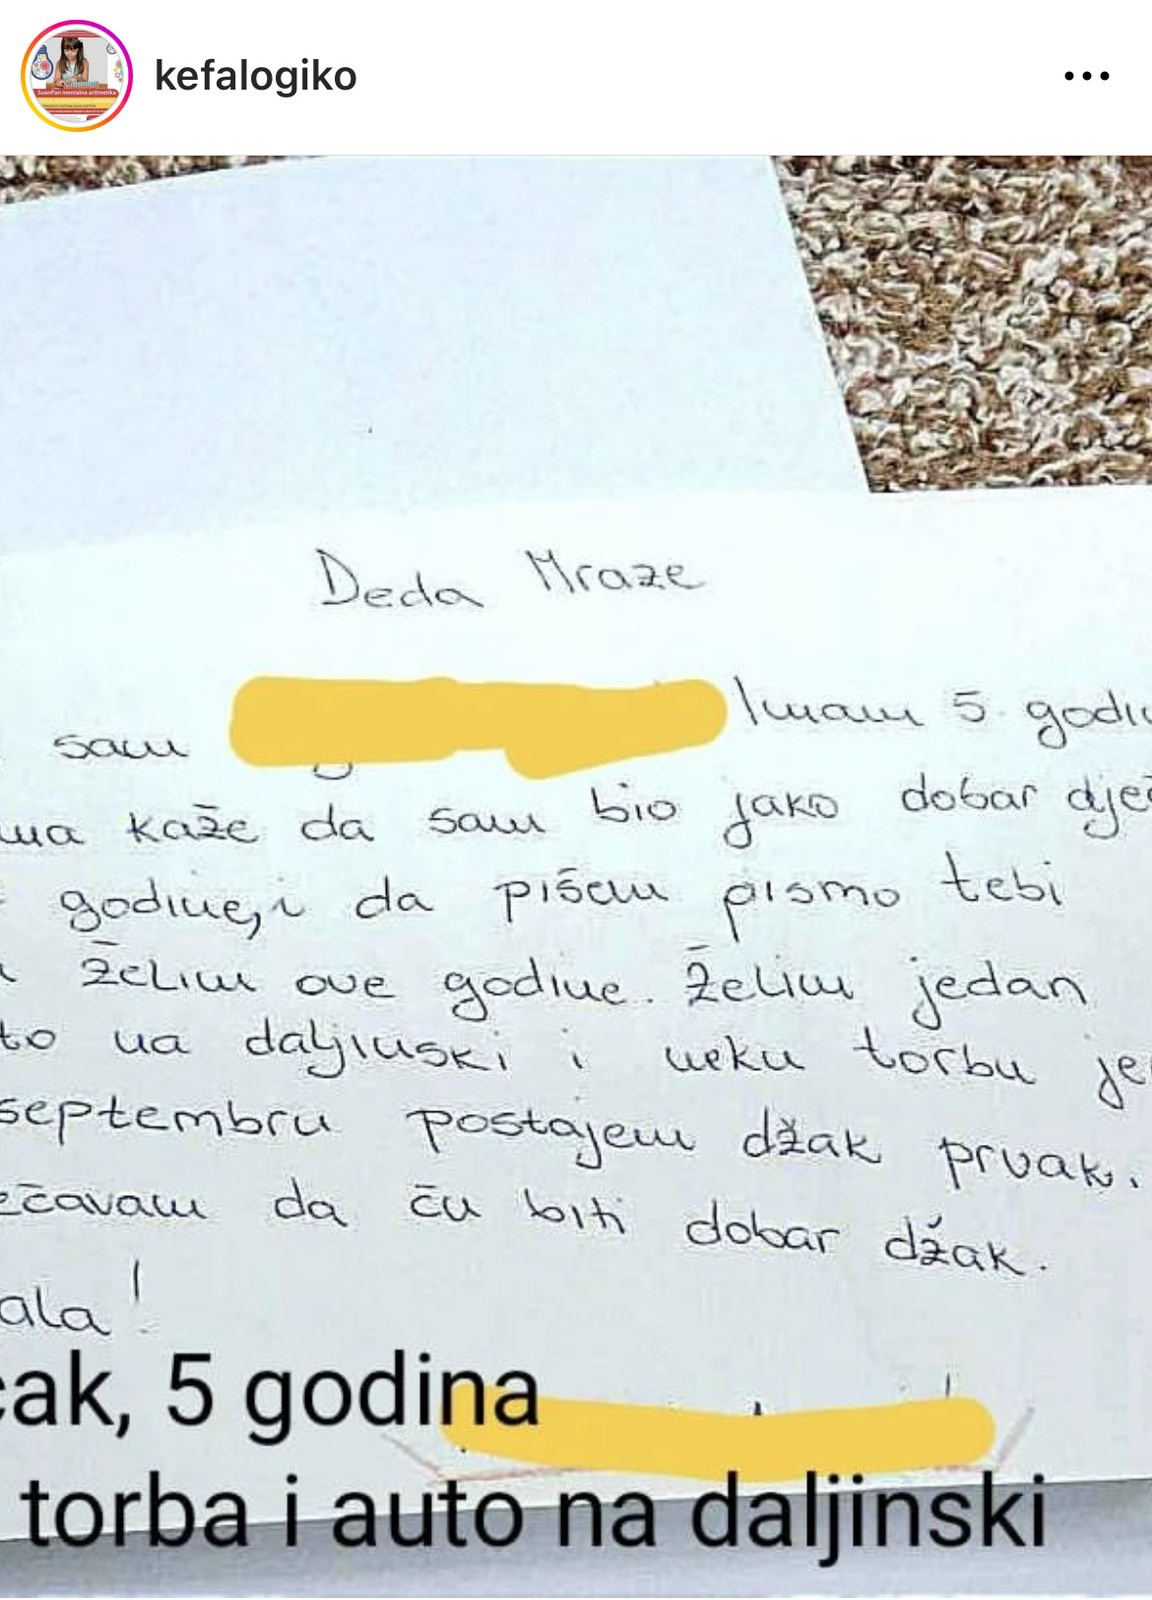 kefalogiko
SuanPan mentalna aritmetika
Deda Mraze
sam Imam 5 godin
ma kaže da sam bio jako dobar dječ
godine, i da pišem pismo tebi
želim ove godine. Želim jedan
to na daljinski i neku torbu je
septembru postajem džak prvak.
ećavam da ću biti dobar džak.
ala!
čak, 5 godina
torba i auto na daljinski